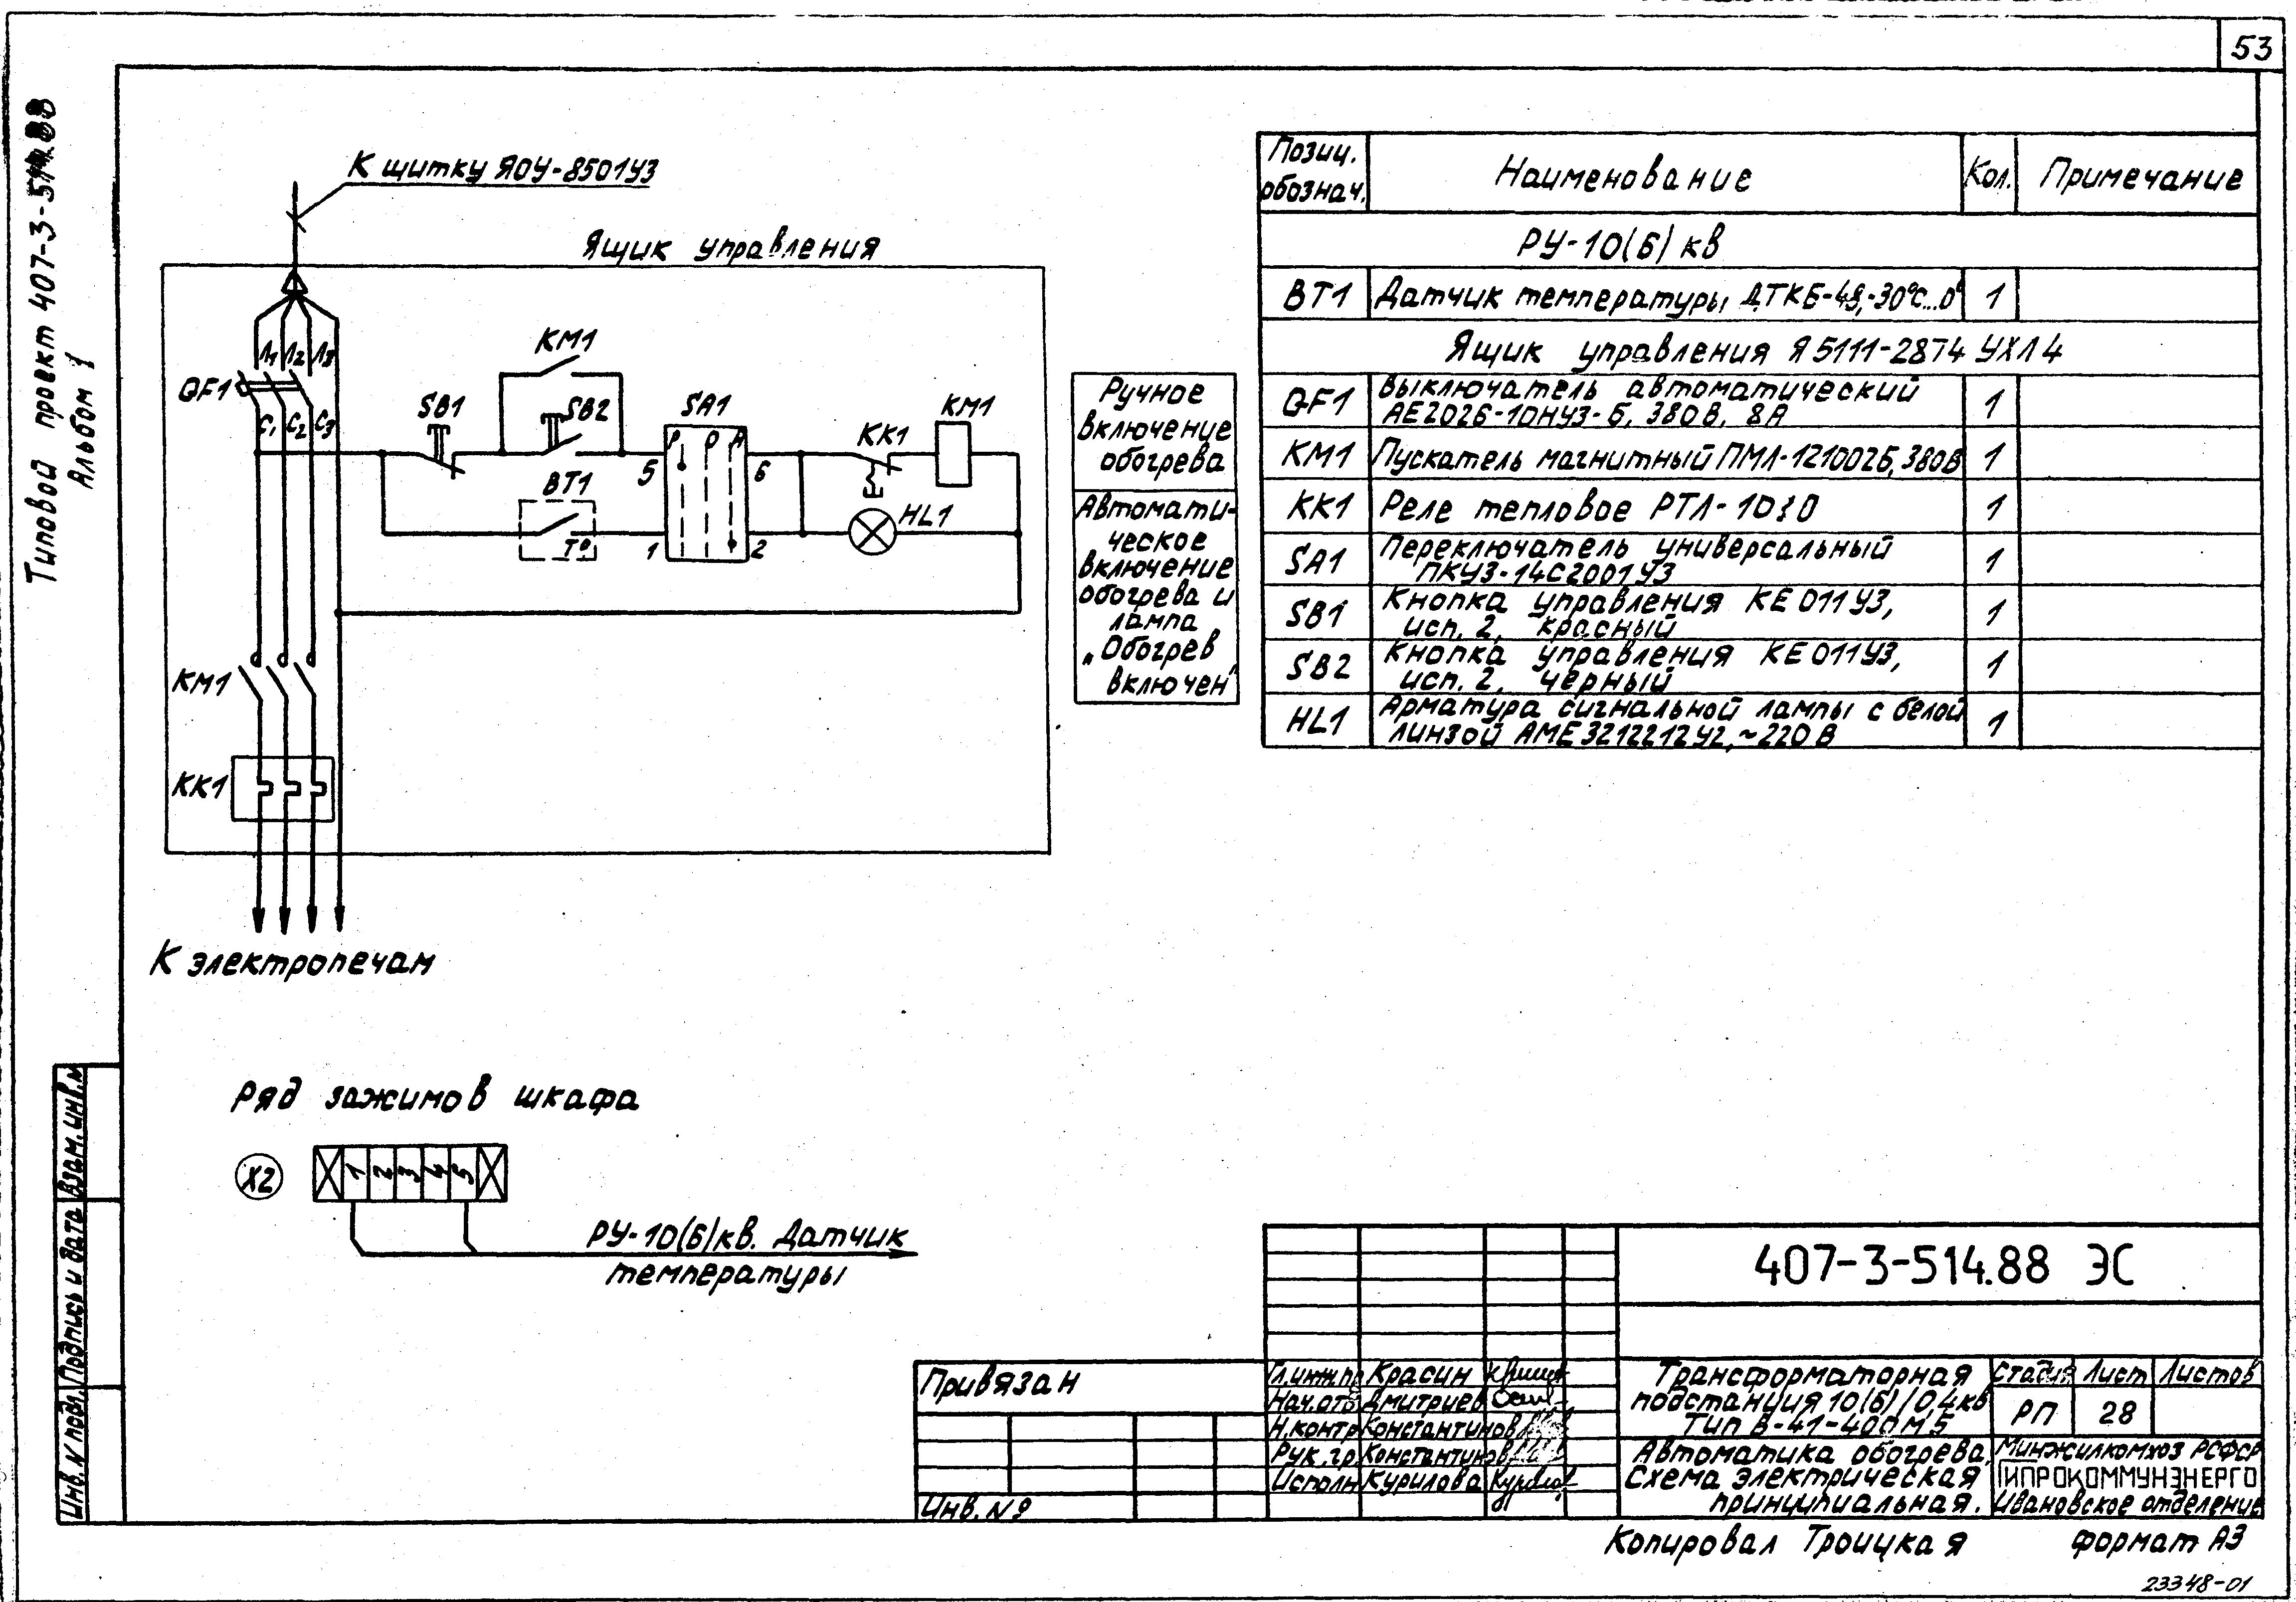 53
Типовой проект 407-3-514.88
Альбом 1
К щитку ЯОУ-8501У3
Ящик управления
Л1 Л2 Л3
QF1
С1 С2 С3
SB1
KM1
SB2
SA1
Р О А
5
6
1
2
BT1
T°
KK1
KM1
HL1
KM1
KK1
К электропечам
Ручное
включение
обогрева
Автомати-
ческое
включение
обогрева и
лампа
„Обогрев
включен"
Позиц. обознач. Наименование Кол. Примечание
РУ-10(6) кв
BT1 Датчик температуры ДТКБ-48,-30°С...0° 1
Ящик управления Я5111-2874 УХЛ4
QF1 Выключатель автоматический
АЕ2026-10НУ3-Б, 380В, 8А 1
KM1 Пускатель магнитный ПМЛ-121002Б, 380В 1
KK1 Реле тепловое РТЛ- 1
SA1 Переключатель универсальный
ПКУ3-14С2001У3 1
SB1 Кнопка управления КЕ 011У3,
исп. 2, красный 1
SB2 Кнопка управления КЕ 011У3,
исп. 2, черный 1
HL1 Арматура сигнальной лампы с белой
линзой АМЕ3212212У2, ~220В 1
Ряд зажимов шкафа
X2
1 2 3 4 5
РУ-10(6)кв. Датчик
температуры
Инв. N подл. Подпись и дата Взам. инв. N
Привязан
Инв. №
407-3-514.88 ЭС
Гл.инж.пр Красин
Нач.отд Дмитриев
Н.контр Константинов
Рук.гр. Константинов
Исполн Курилова
Трансформаторная
подстанция 10(6)/0,4кв
Тип В-41-400М5
Стадия Лист Листов
РП 28
Автоматика обогрева.
Схема электрическая
принципиальная.
Минжилкомхоз РСФСР
ГИПРОКОММУНЭНЕРГО
Ивановское отделение
Копировал Троицкая
формат А3
23348-01